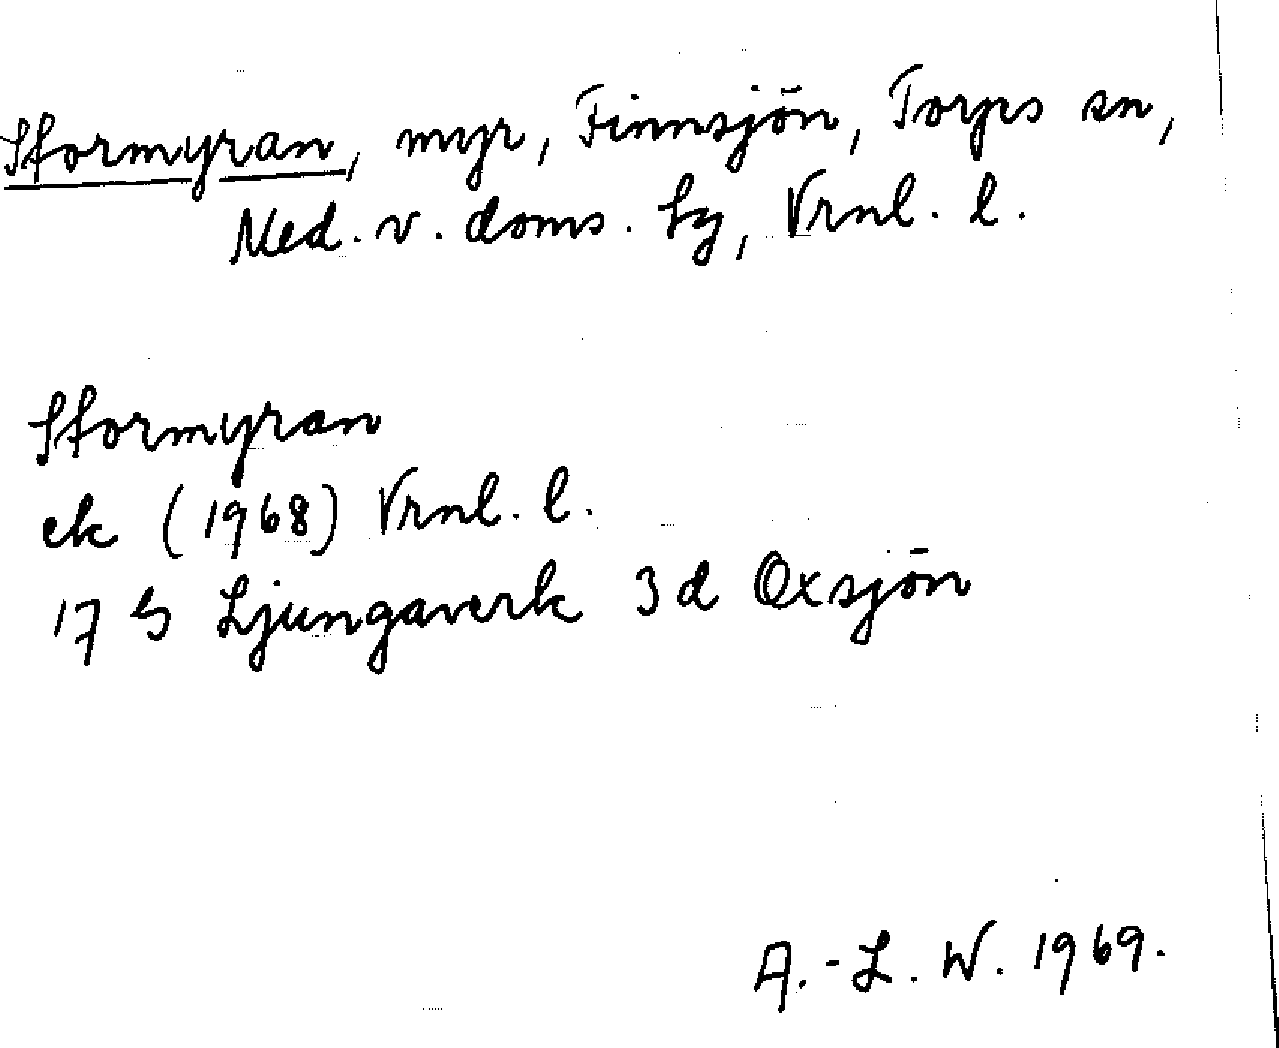 Stormyran, myr, Finnsjön, Torps sn,
Med. v. doms. tg, Vrnl. l.
Stormyran
ek (1968) Vrnl. l.
17 G Ljungaverk 3 d Oxsjön
A.-L. W. 1969.